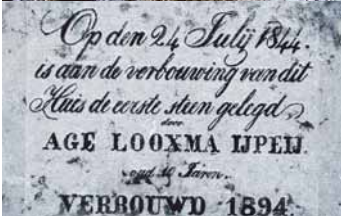 Op den 24 Julij 1844.
is aan de verbouwing van dit
Huis de eerste steen gelegd
door
AGE LOOXMA IJPEIJ
oud 10 Jaren.
VERBOUWD 1894